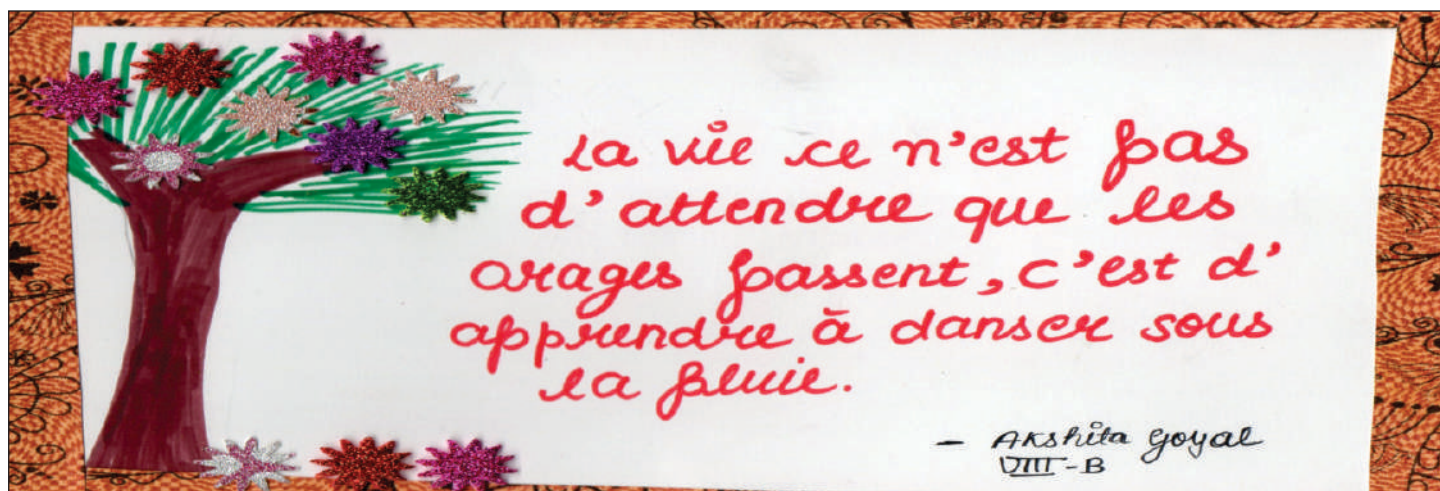 la vie ce n'est pas
d'attendre que les
orages passent, c'est d'
apprendre à danser sous
la pluie.
- Akshita Goyal
VIII-B